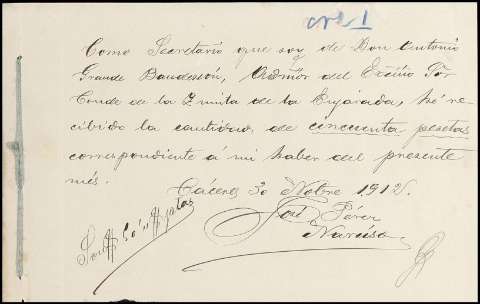 Como Secretario que soy de Don Antonio
Grande Baudessón, Admor del Excmo Sor
Conde de la Quinta de la Enjarada, hé re-
cibido la cantidad de cincuenta pesetas
correspondiente á mi haber del presente
més.
Cáceres 30 Nobre 1912.
José Pérez
Narciso
Son ptas